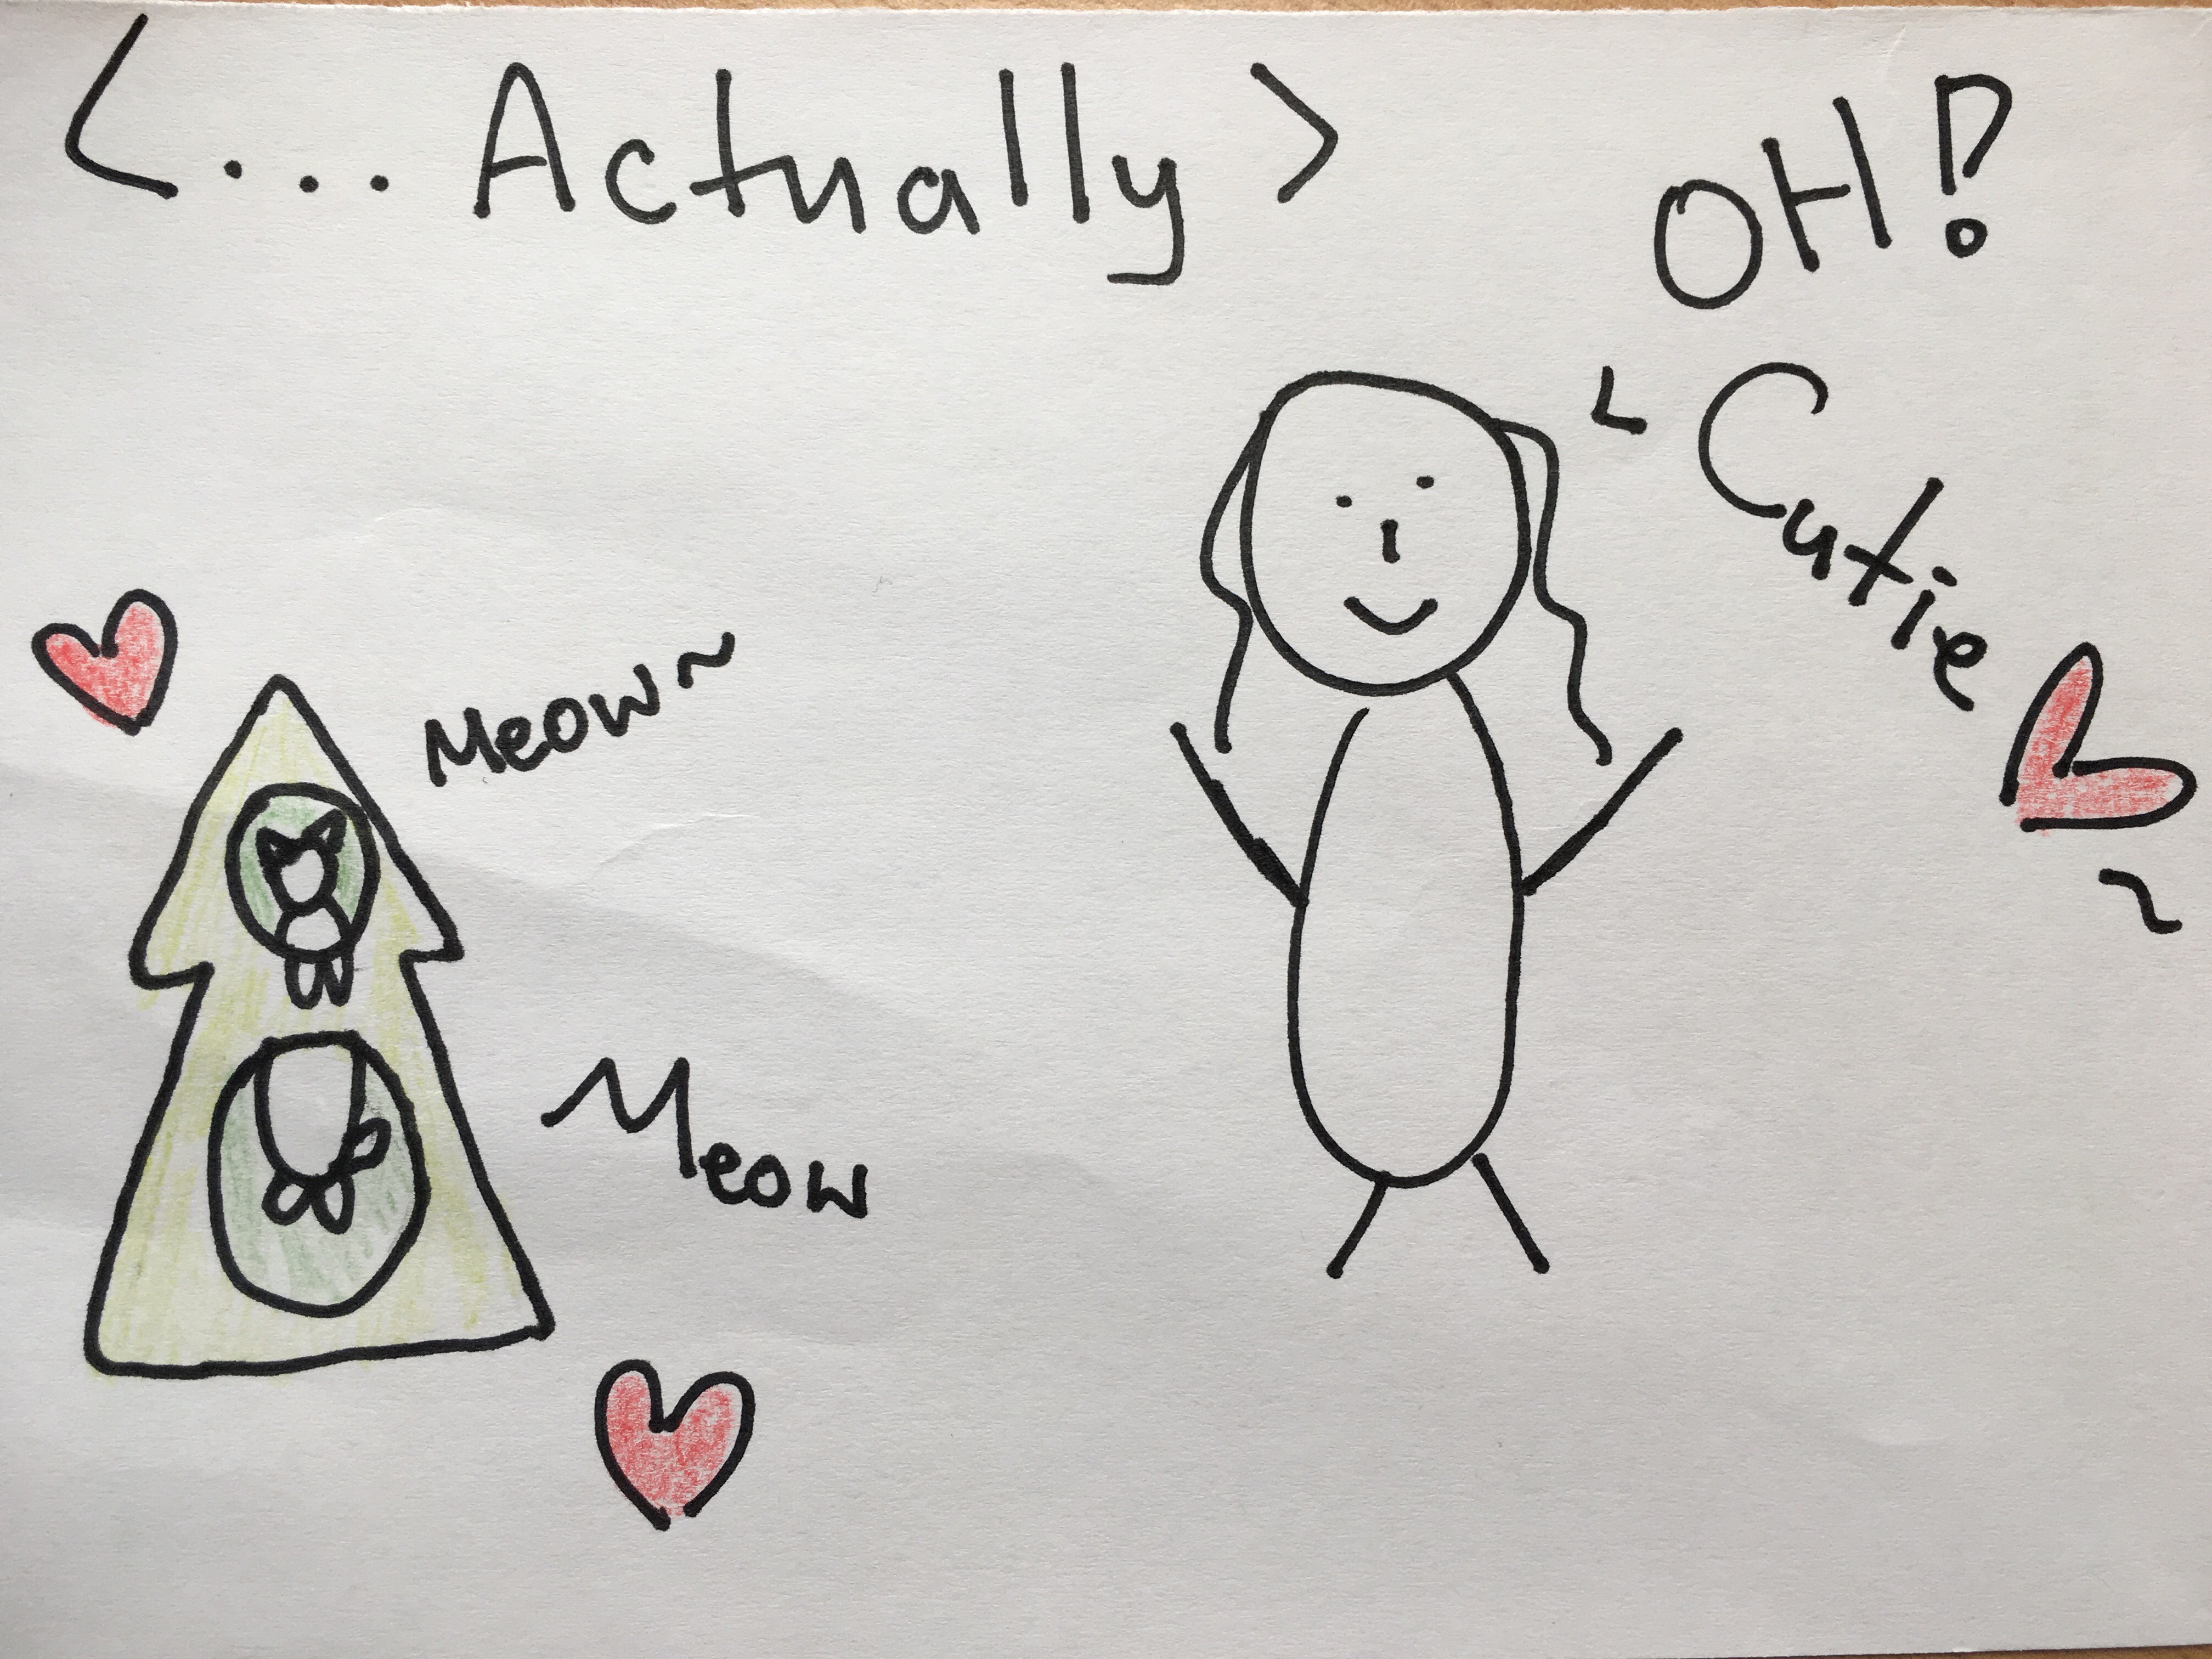 <...Actually>
OH!
~Cutie
~
Meow~
Meow